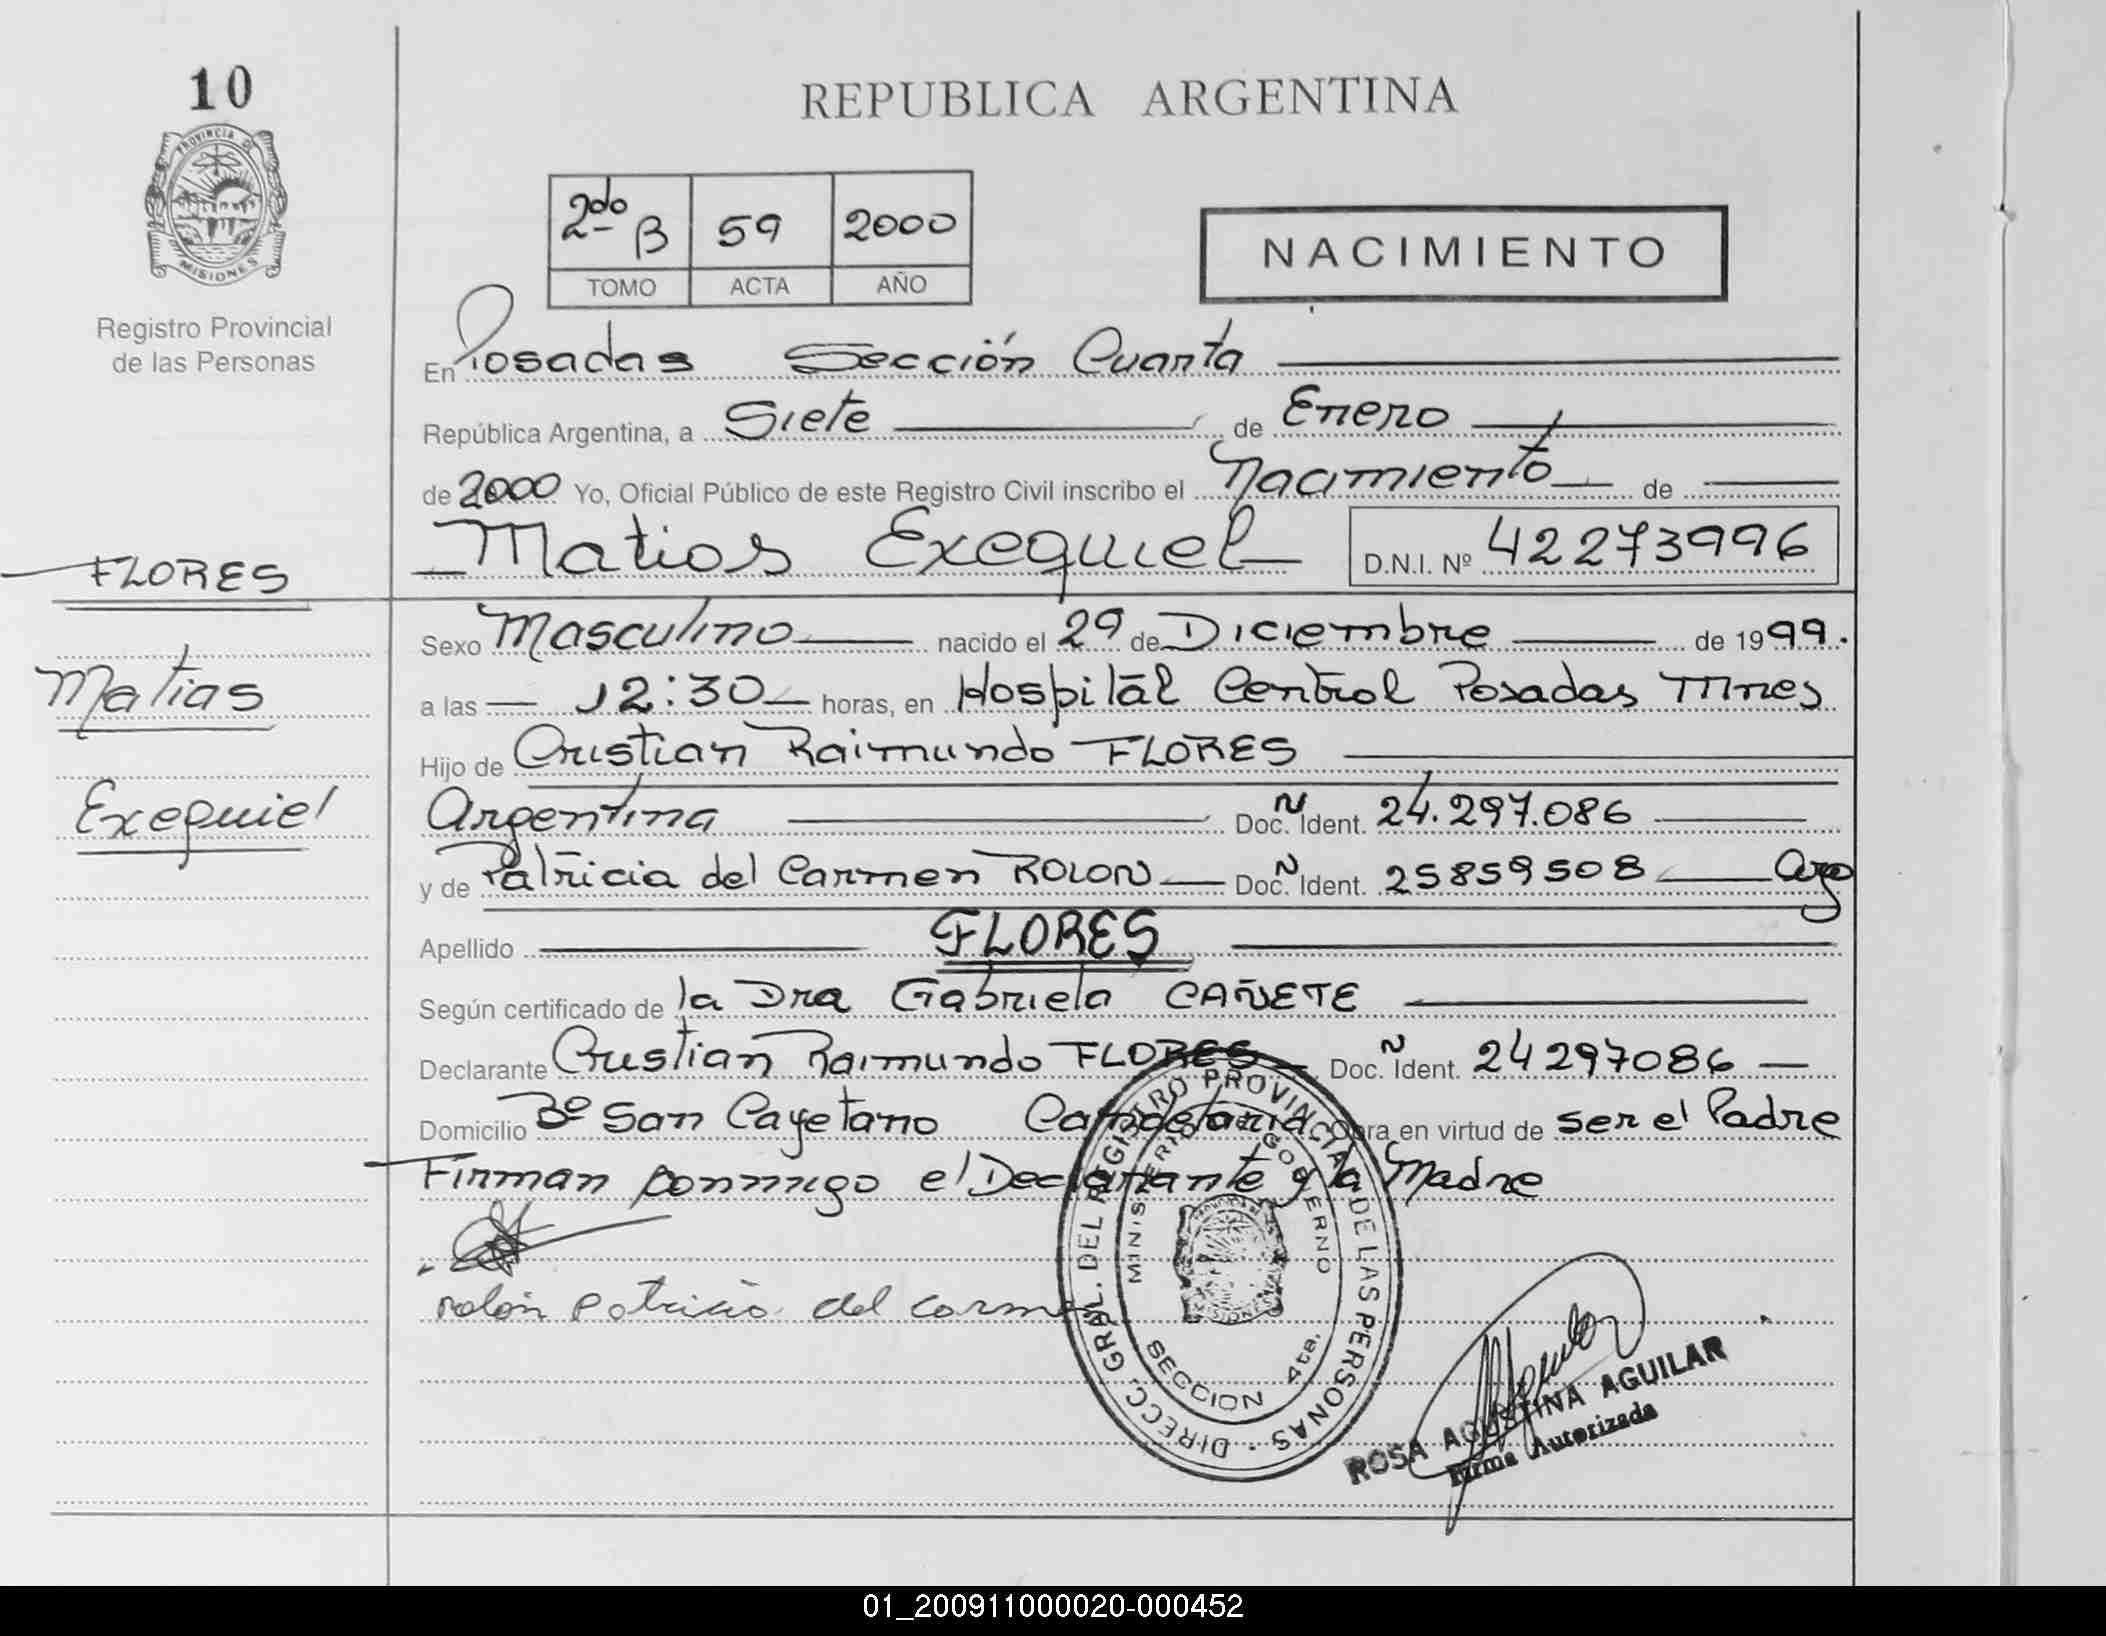 10
PROVINCIA DE
MISIONES
Registro Provincial
de las Personas
FLORES
Matias
Exequiel
REPUBLICA ARGENTINA
2do B 59 2000
TOMO ACTA AÑO
NACIMIENTO
En Posadas Sección Cuarta
República Argentina, a Siete de Enero
de 2000 Yo, Oficial Público de este Registro Civil inscribo el Nacimiento de
Matias Exequiel D.N.I. Nº 42273996
Sexo Masculino nacido el 29 de Diciembre de 1999.
a las 12:30 horas, en Hospital Central Posadas Mnes
Hijo de Cristian Raimundo FLORES
Argentina Doc. Ident. 24.297.086
y de Patricia del Carmen ROLON Doc. Ident. 25859508 Arg
Apellido FLORES
Según certificado de la Dra Gabriela CAÑETE
Declarante Cristian Raimundo FLORES Doc. Ident. 24297086
Domicilio Bº San Cayetano Candelaria Obra en virtud de ser el Padre
Firman conmigo el Declarante y la Madre
rolón patricia del carmen
DIRECC. GRAL. DEL REGISTRO PROVINCIAL DE LAS PERSONAS
MINISTERIO DE GOBIERNO
MISIONES
SECCION 4ta.
ROSA AGUSTINA AGUILAR
Firma Autorizada
01_200911000020-000452